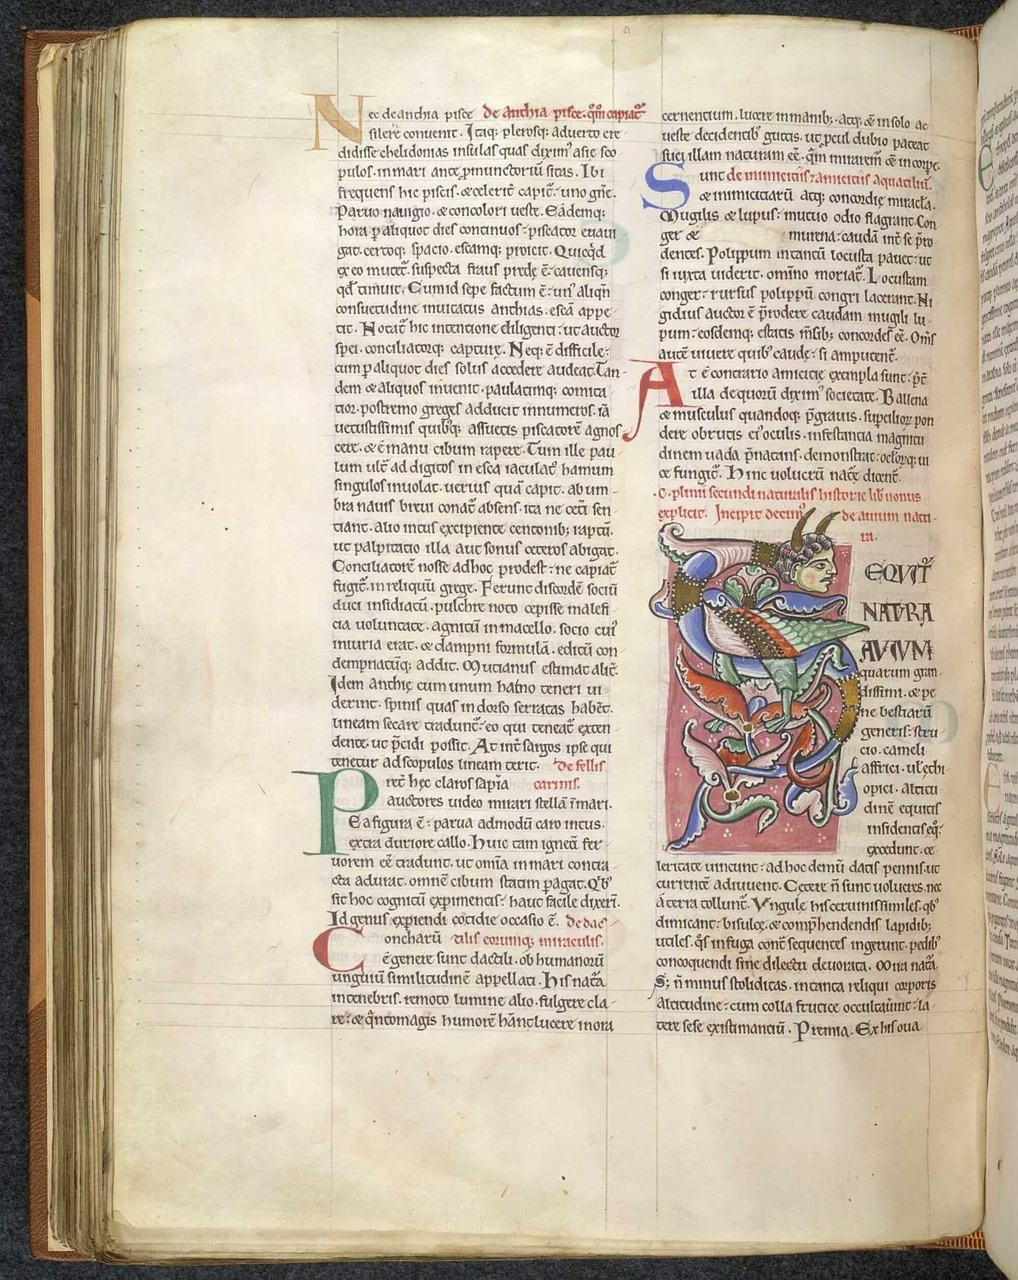 Nec de anthia pisce de anthia pisce. qm̄ capiat᷑
silere convenit. Itaq; plerosq; adverto cre
didisse chelidonias insulas quas dixim᷒ asie sco
pulos. in mari ante ꝓmunctoriū sitas. Ibi
frequens hic piscis. & celerit᷑ capit᷑. uno gn̄e.
Paruo nauigio. & concolori ueste. Eādemq;
hora ꝑ aliquot dies continuos. piscator euaui
gat. certoq; spacio. escamq; proicit. Quicq̇d
ex eo mutet᷑. suspecta fraus prede ē. cauensq;
qd̄ timuit. Cum id sepe factum ē. un᷒ aliqn̄
consuetudine inuitatus anthias. escā appe
tit. Notat᷑ hic intentione diligenti. ut auctor
spei. conciliatorq; capture. Neq; ē difficile.
cum ꝑ aliquot dies solus accedere audeat. Tan
dem & aliquos inuenit. paulatimq; comita
tior. postremo greges adducit innumeros. iā
uetustissimis quibq; assuetis piscatorē agnos
cere. & ē manu cibum rapere. Tum ille pau
lum ult᷑ ad digitos in esca iaculat᷑ hamum
singulos inuolat. uerius quā capit. ab um
bra nauis breui conat᷑ absens. ita ne cet̄i sen
tiant. alio intus excipiente centonib; raptū.
ut palpitatio illa aut sonus ceteros abigat.
Conciliatorē nosse ad hoc prodest. ne capiat᷑
fugit᷑. in reliquū grege. Ferunt discordē sociū
duci insidiatū. pulchre noto cepisse malefi
cia uoluntate. agnitū in macello. socio cui᷒
iniuria erat. & dampni formulā. editū con
dempnatūq; addit. Mutianus estimat alit᷑.
Idem anthię cum unum hamo teneri ui
derint. spinis quas in dorso serratas habēt.
lineam secare tradunt᷑. eo qui teneat᷑ exten
dente. ut p̄cidi possit. At int᷑ sargos ipse qui
tenetur ad scopulos lineam terit. de stellis
Pret᷑ hęc claros sapia marinis.
auctores uideo mirari stellā ī mari.
Ea figura ē. parua admodū caro intus.
extra duriore callo. Huic tam igneū fer
uorem eē tradunt. ut om̄ia in mari contra
cta adurat. omnē cibum statim ꝑagat. Q̇b᷒
sit hoc cognitū experimentis. haut facile dixerī.
Id genus expiendi cotidie occasio ē. de dac
Concharū tilis eorumq; miraculis.
ē genere sunt dactili. ob humanorū
unguiū similitudinē appellati. His nat᷑a
in tenebris. remoto lumine alio. fulgere cla
re. & q̄ntomagis humorē hānt lucere in ora
cernentium. lucere in manib;. atq; ēē in solo ac
ueste decidentib᷒ guttis. ut ꝓcul dubio pateat
succi illam naturam eē. q̄m miraremur & in corpe.
Sunt de inimicitiis & amicitiis aquatiliū.
& inimicitiarū atq; concordię miracl̄a.
Mugilis & lupus. mutuo odio flagrant. Con
ger & murena. caudā int᷑ se p̄ro
dentes. Polippum in tantū locusta pauet. ut
si iuxta uiderit. om̄ino moriat᷑. Locustam
conger. rursus polippū congri lacerant. Ni
gidius auctor ē p̄rodere caudam mugili lu
pum. eosdemq; estatis m̄sib; concordes eē. Om̄s
aut̄ uiuere quib᷒ caudę si amputent᷑.
At ē contrario amicicię exempla sunt. p̄t᷑
illa de quorū dixim᷒ societate. Balena
& musculus quandoq; p̄graui s. supcilior̄ pon
dere obrutis ei᷒ oculis. infestantia magnitu
dinem uada p̄natans. demonstrat. oclorq; ui
ce fungit᷑. Hinc volucrū nat᷑ę dicent᷑.
.C. plinii secundi naturalis historie lib nonus
explicit. Incipit decim᷒ de auium natu-
ra.
SEQVIT᷑
NATVRA
AVIVM
quarum gran
dissimi. & pe
ne bestiarū
generis. stru
tio cameli
affrici. ul̄ ethi
opici. altitu
dinē equitis
insidentis eq̇.
excedunt. ce
leritate uincunt. ad hoc demū datis pennis. ut
currentē adiuuent. Cetere n̄ sunt uolucres. nec
a terra tollunt᷑. Ungulę his ceruinis similes. qb᷒
dimicant. bisulce. & comp̄hendendis lapidib;
utiles. q̇s in fuga cont᷑ sequentes ingerunt. pedib᷒
concoquendi sine dilectu deuorata. Mira nat᷑a.
S; n̄ minus stoliditas. in tanta reliqui corporis
altitudine. cum colla frutice occultauint. la-
tere sese existimantiū. Premia. Ex his oua